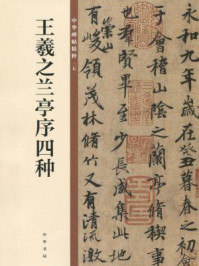 中華碑帖精粹 七
王羲之兰亭序四种
中華書局
永和九年歲在癸丑暮春之初會
于會稽山陰之蘭亭脩稧事
也羣賢畢至少長咸集此地
有崇山峻領茂林脩竹又有清流激